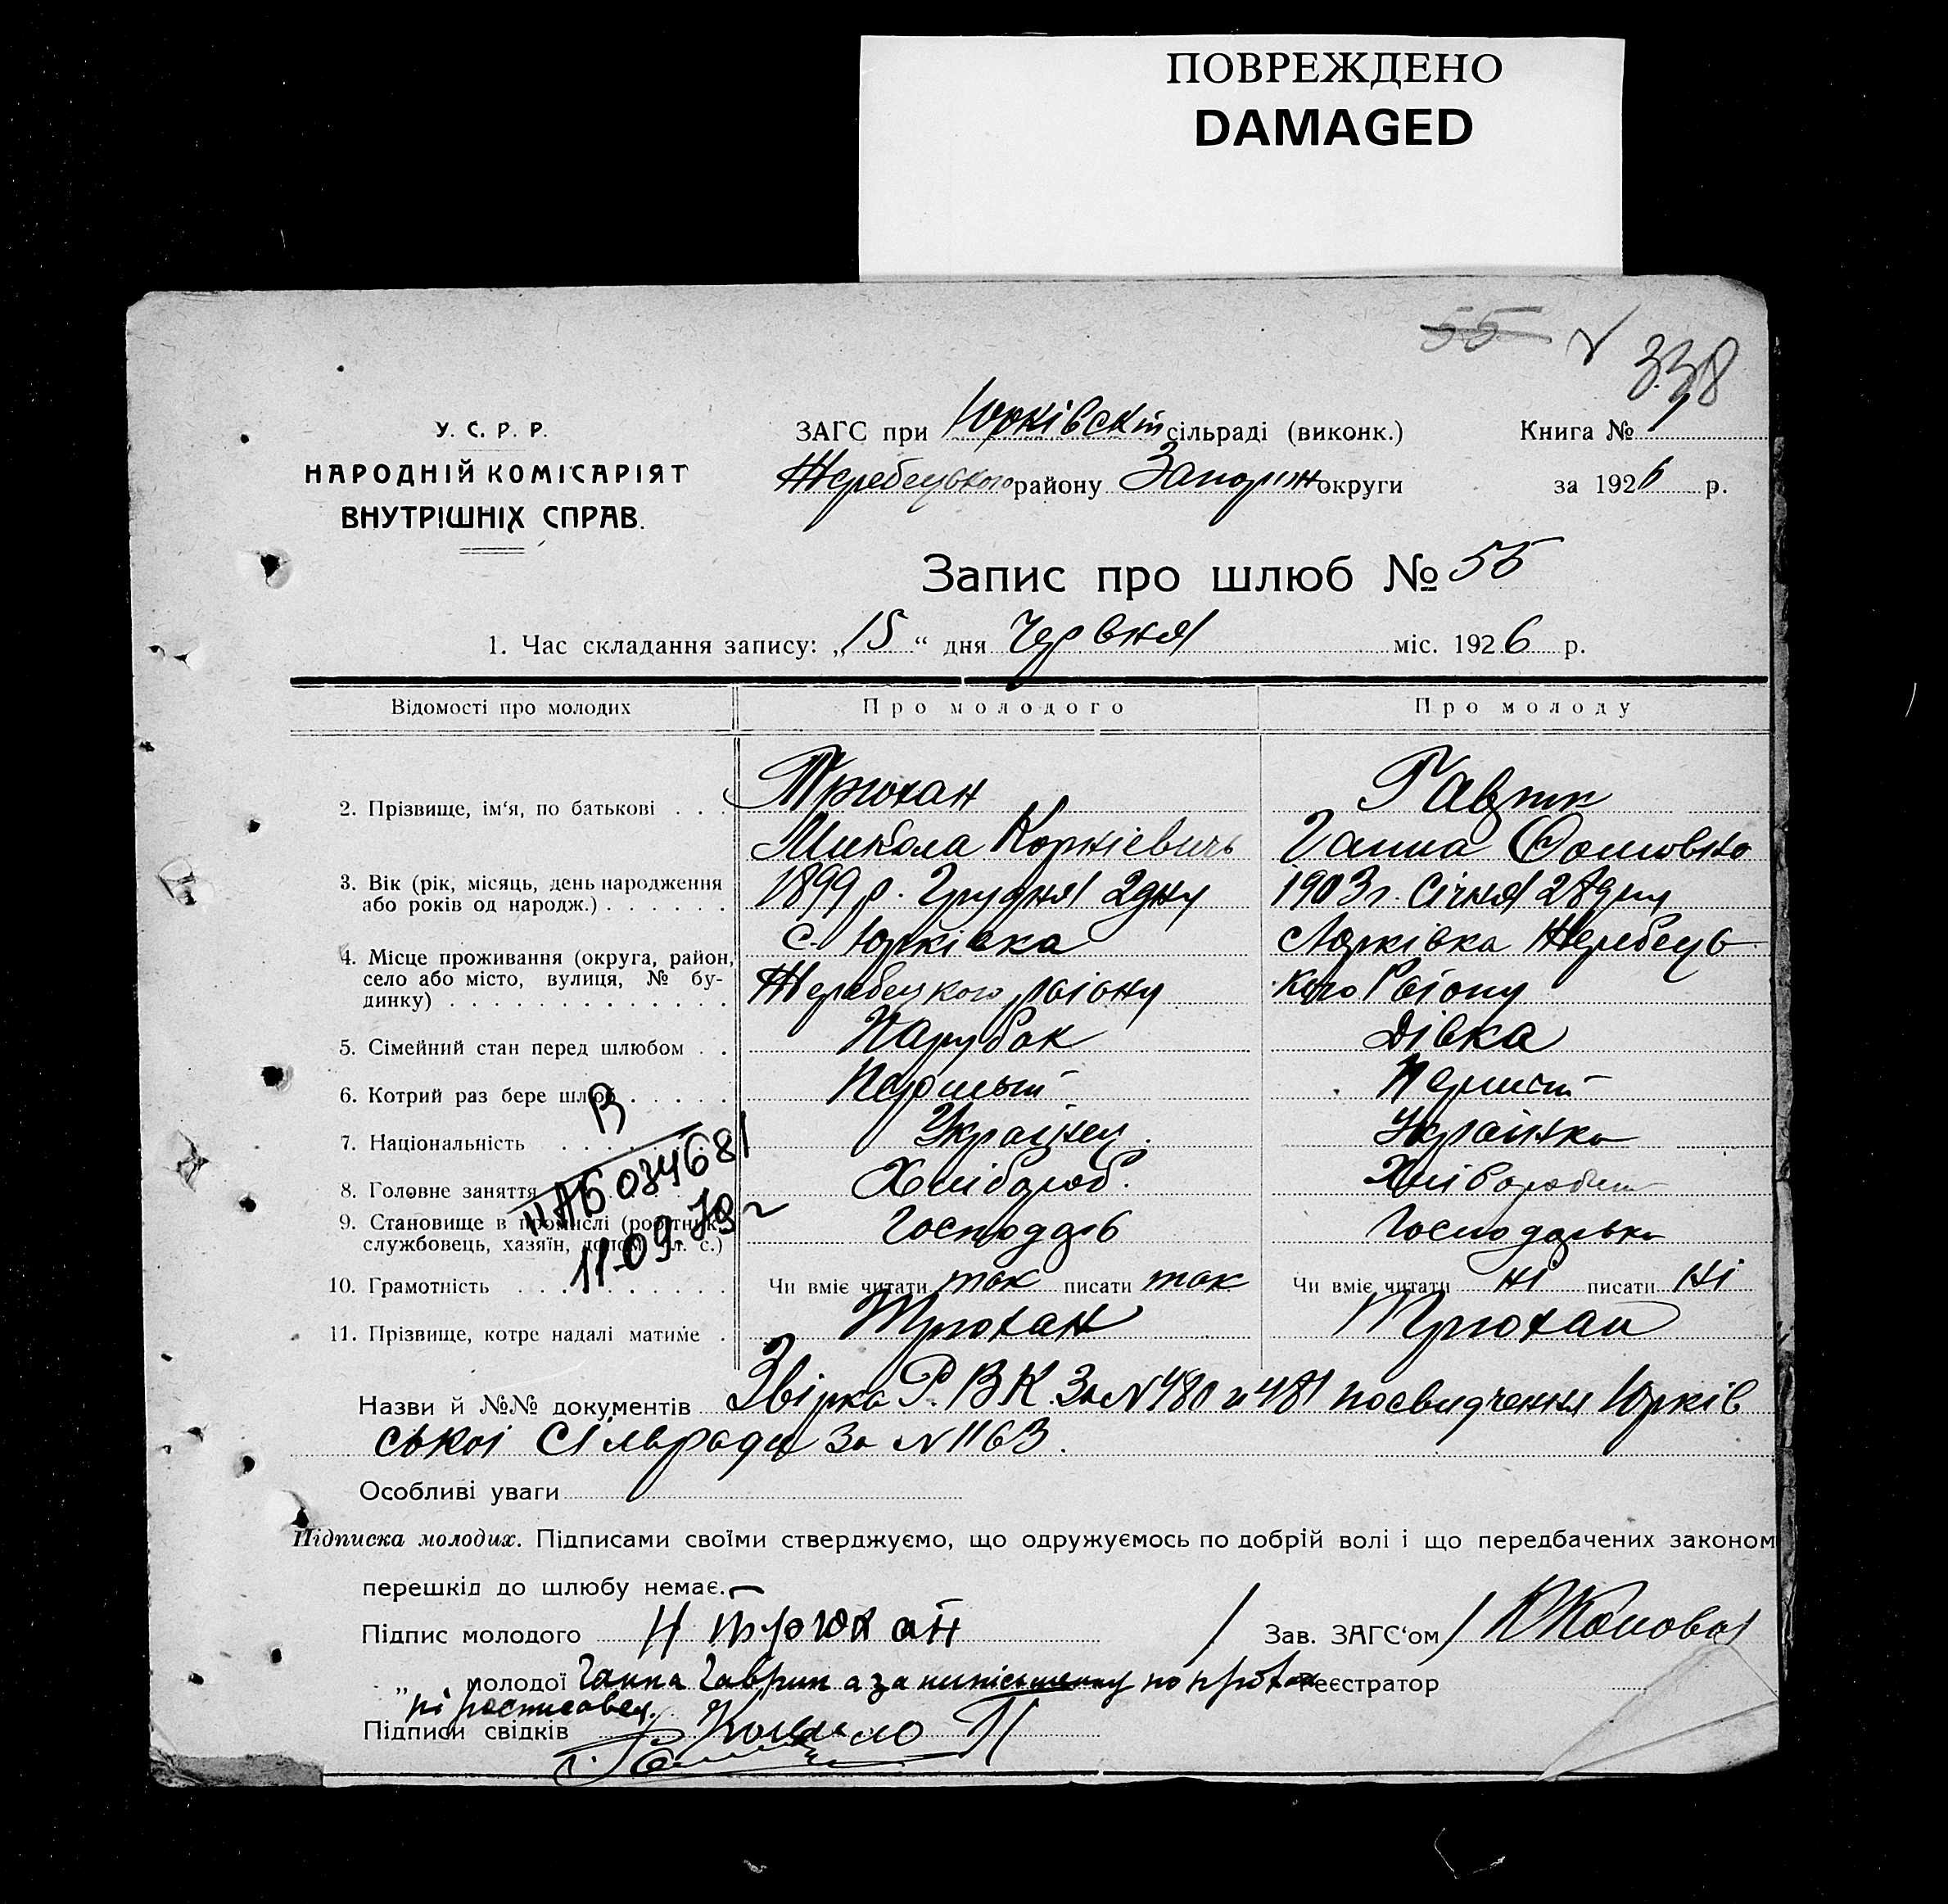 ПОВРЕЖДЕНО
DAMAGED
55 338
У. С. Р. Р.
НАРОДНІЙ КОМІСАРІЯТ
ВНУТРІШНІХ СПРАВ.
ЗАГС при Юрківскій сільраді (виконк.) Книга №
Жеребецького району Запоріж округи за 1926 р.
Запис про шлюб № 55
1. Час складання запису: „15“ дня Червня міс. 1926 р.
Відомості про молодих Про молодого Про молоду
2. Прізвище, ім'я, по батькові . . . Трюхан
Микола Корнієвичь Ганна
3. Вік (рік, місяць, день народження або років од народж.) . . . . . . 1899 р. Грудня 2 дну 1903 г. Січня 28 дну
4. Місце проживання (округа, район, село або місто, вулиця, № будинку) . . . . . . . . . . . . . с. Юрківка с Юрківка Жеребець-
Жеребецкого раіону кого Раіону
5. Сімейний стан перед шлюбом . . Парубок Дівка
6. Котрий раз бере шлюб . . . . . Першый Першій
7. Національність . . . . . . Украінец. Украінка
8. Головне заняття Хлібороб.
9. Становище в промислі (робітник, службовець, хазяїн, допом. чл. с.) Господарь Господарька
В
II АБ 034681
11.09.79 г
10. Грамотність . . . . . . . . . . Чи вміє читати так писати так Чи вміє читати ні писати ні
11. Прізвище, котре надалі матиме . Трюхан Трюхан
Назви й №№ документів Звірка Р. В К. За № 480 и 481 посвидчення Юрків
ськоі Сільради за № 1163.
Особливі уваги
Підписка молодих. Підписами своїми стверджуємо, що одружуємось по добрій волі і що передбачених законом
перешкід до шлюбу немає.
Підпис молодого Н трюхан Зав. ЗАГС'ом
„ молодої Ганна а за Реєстратор
Підписи свідків